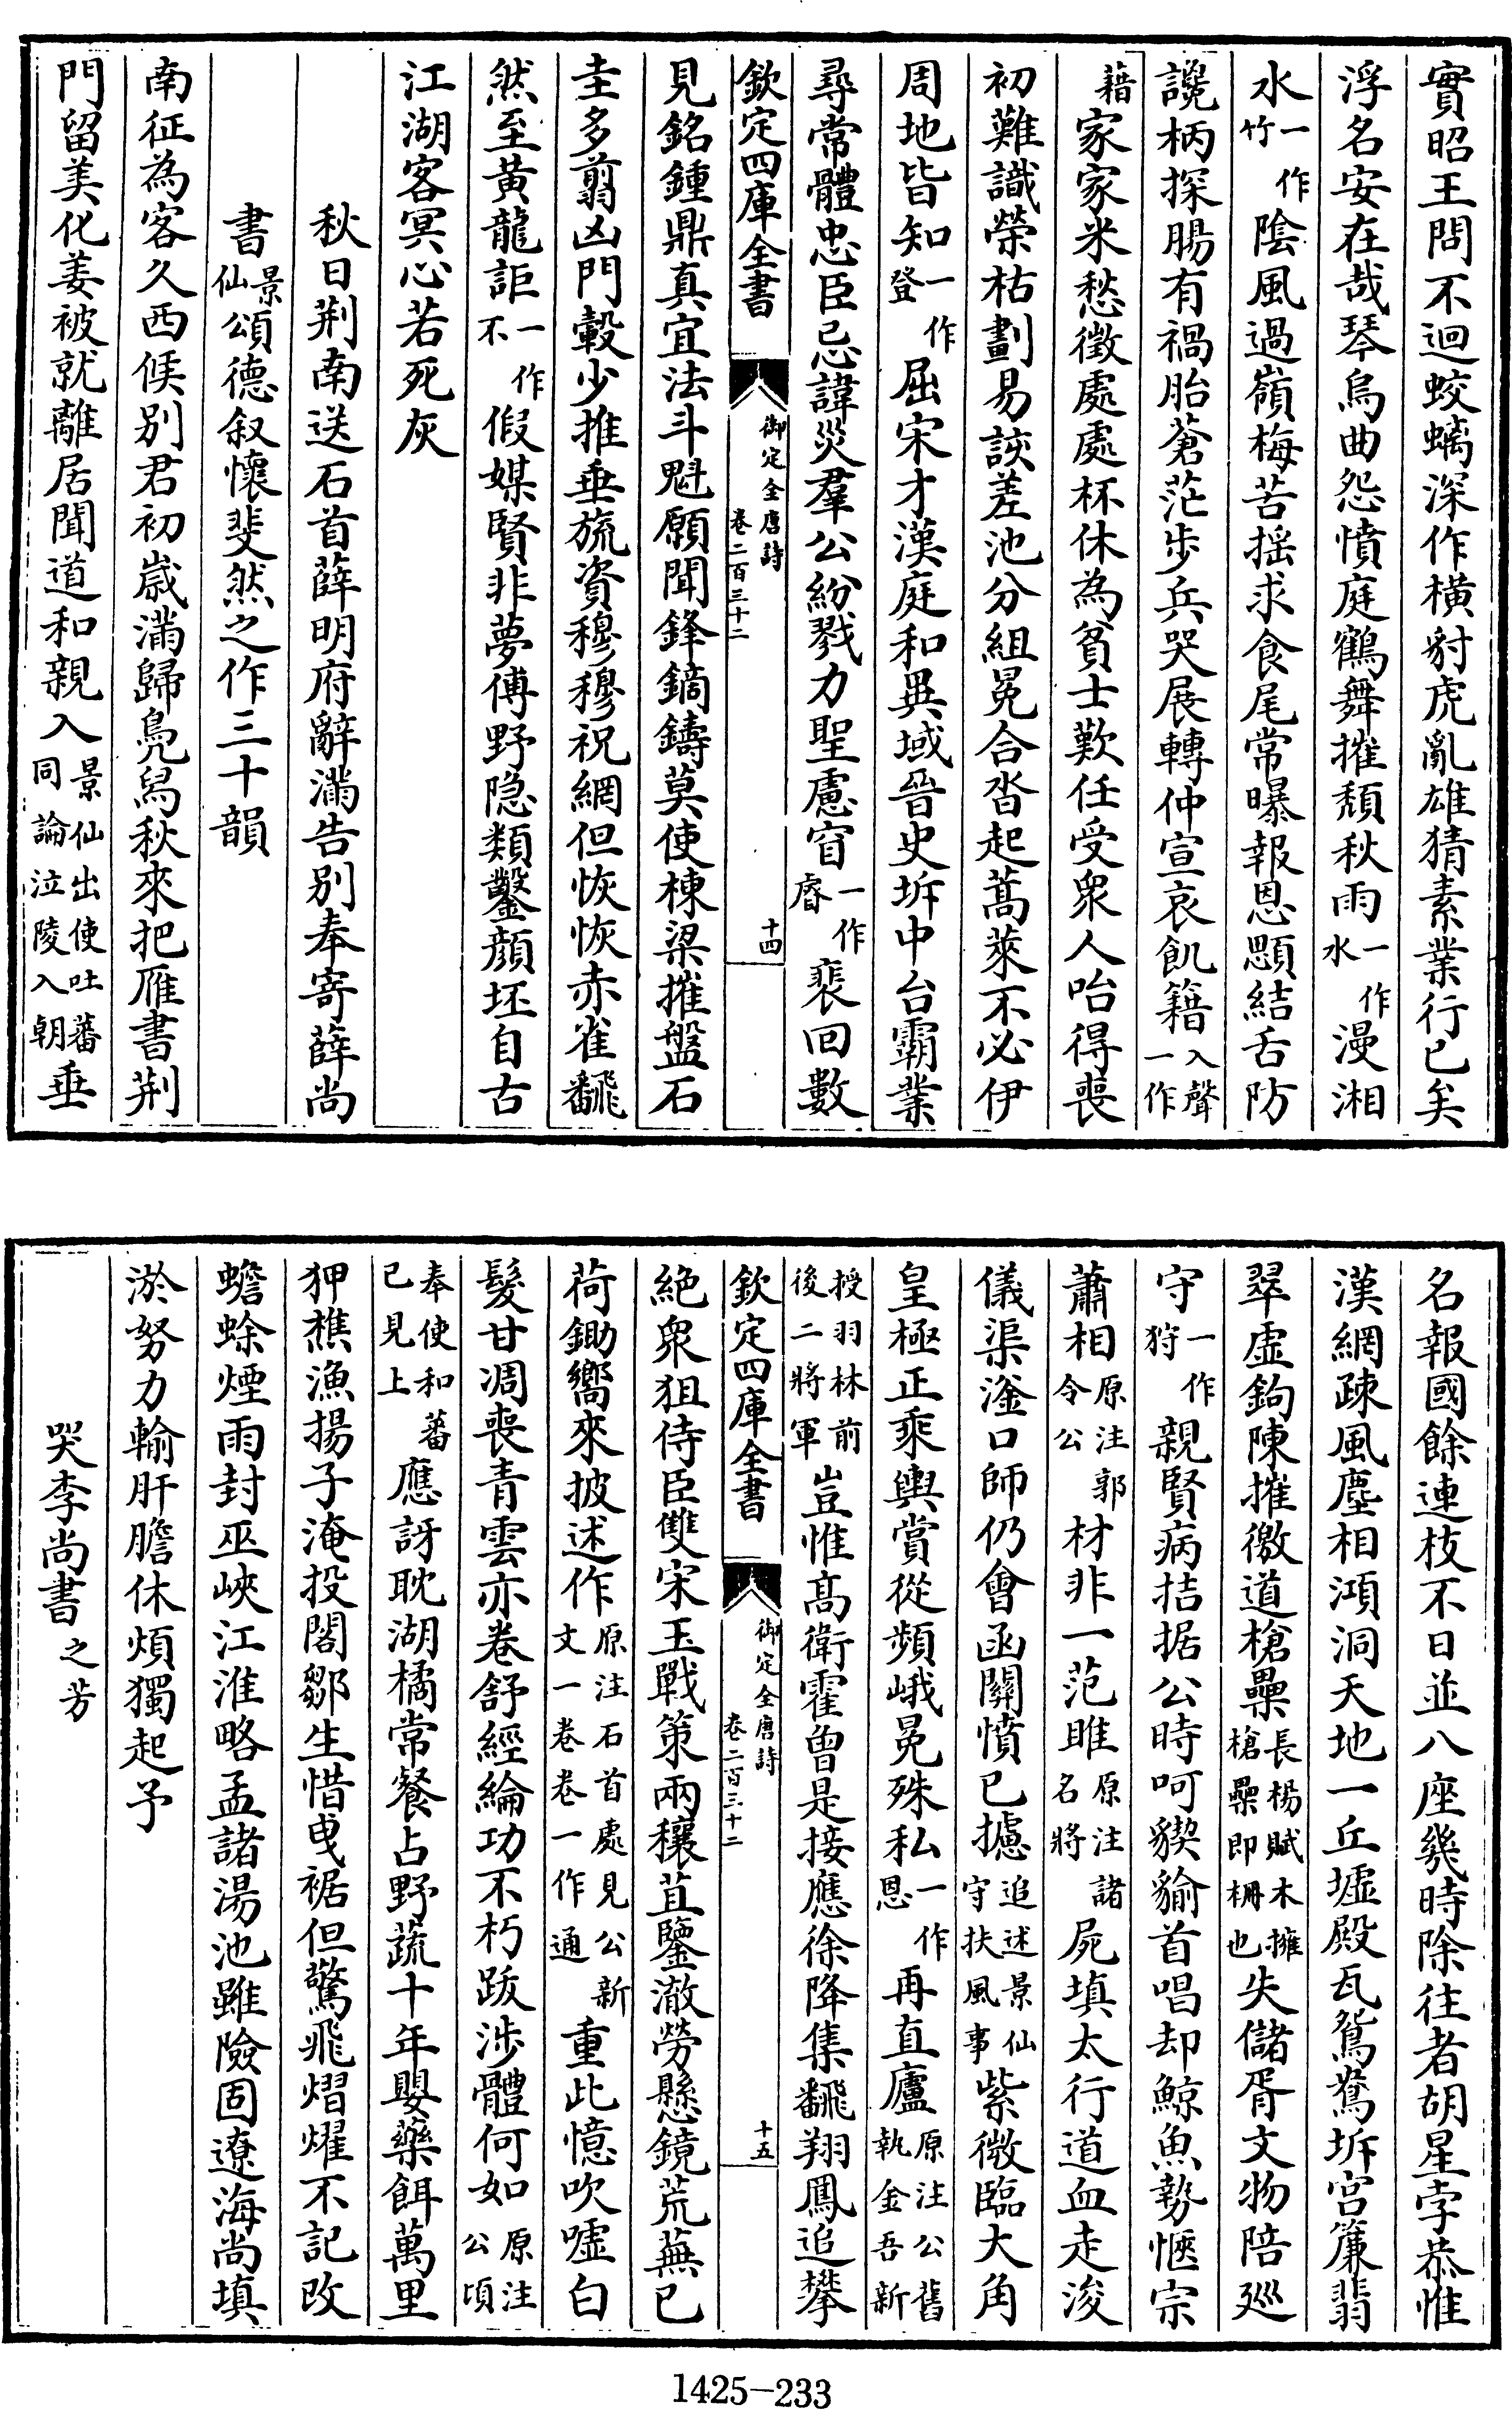 實昭王問不迴蛟螭深作橫豺虎亂雄猜素業行已矣
浮名安在哉琴烏曲怨憤庭鶴舞摧頹秋雨一作水漫湘
水一作竹陰風過嶺梅苦摇求食尾常曝報恩顋結舌防
讒柄探腸有禍胎蒼茫步兵哭展轉仲宣哀飢籍入聲一作
藉家家米愁徵處處杯休為貧士歎任受衆人咍得喪
初難識榮枯劃易該差池分組冕合沓起蒿萊不必伊
周地皆知一作登屈宋才漢庭和異域晉史坼中台霸業
尋常體忠臣忌諱災羣公紛戮力聖慮窅一作睿裴回數
欽定四庫全書
御定全唐詩
卷二百三十二
十四
見銘鍾鼎真宜法斗魁願聞鋒鏑鑄莫使棟梁摧盤石
圭多翦凶門轂少推垂旒資穆穆祝網但恢恢赤雀翻
然至黄龍詎一作不假媒賢非夢傅野隐類鑿顔坯自古
江湖客冥心若死灰
秋日荆南送石首薛明府辭滿告别奉寄薛尚
書景仙頌德叙懷斐然之作三十韻
南征為客久西候别君初歲滿歸鳧舄秋來把雁書荆
門留美化姜被就離居聞道和親入景仙出使吐蕃同論泣陵入朝垂
名報國餘連枝不日並八座幾時除往者胡星孛恭惟
漢網疎風塵相澒洞天地一丘墟殿瓦鴛鴦坼宫簾翡
翠虚鉤陳摧徼道槍壘長楊賦木擁槍壘即柵也失儲胥文物陪廵
守一作狩親賢病拮据公時呵猰貐首唱却鯨魚勢愜宗
蕭相原注郭令公材非一范雎原注諸名將屍填太行道血走浚
儀渠滏口師仍會函關憤已攄追述景仙守扶風事紫微臨大角
皇極正乘輿賞從頻峨冕殊私一作恩再直廬原注公舊執金吾新
授羽林前後二將軍豈惟髙衛霍曾是接應徐降集翻翔鳳追攀
欽定四庫全書
御定全唐詩
卷二百三十二
十五
絶衆狙侍臣雙宋玉戰策兩穰苴鑒澈勞懸鏡荒蕪已
荷鋤嚮來披述作原注石首處見公新文一卷卷一作通重此憶吹噓白
髮甘凋喪青雲亦卷舒經綸功不朽跋涉體何如原注公頃
奉使和蕃已見上應訝耽湖橘常餐占野蔬十年嬰藥餌萬里
狎樵漁揚子淹投閣鄒生惜曳裾但驚飛熠燿不記改
蟾蜍煙雨封巫峽江淮略孟諸湯池雖險固遼海尚填
淤努力輸肝膽休煩獨起予
哭李尚書之芳
1425-233